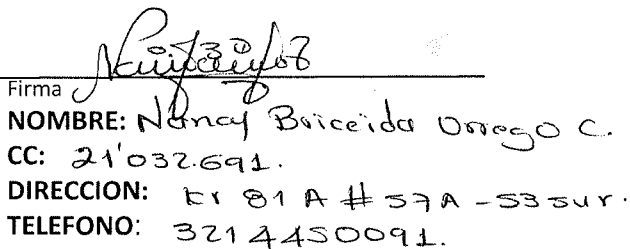 Firma
NOMBRE: Nancy Briceida Orrego C.
CC: 21'032.691.
DIRECCION: Kr 81 A # 57A - 53 sur.
TELEFONO: 3214450091.